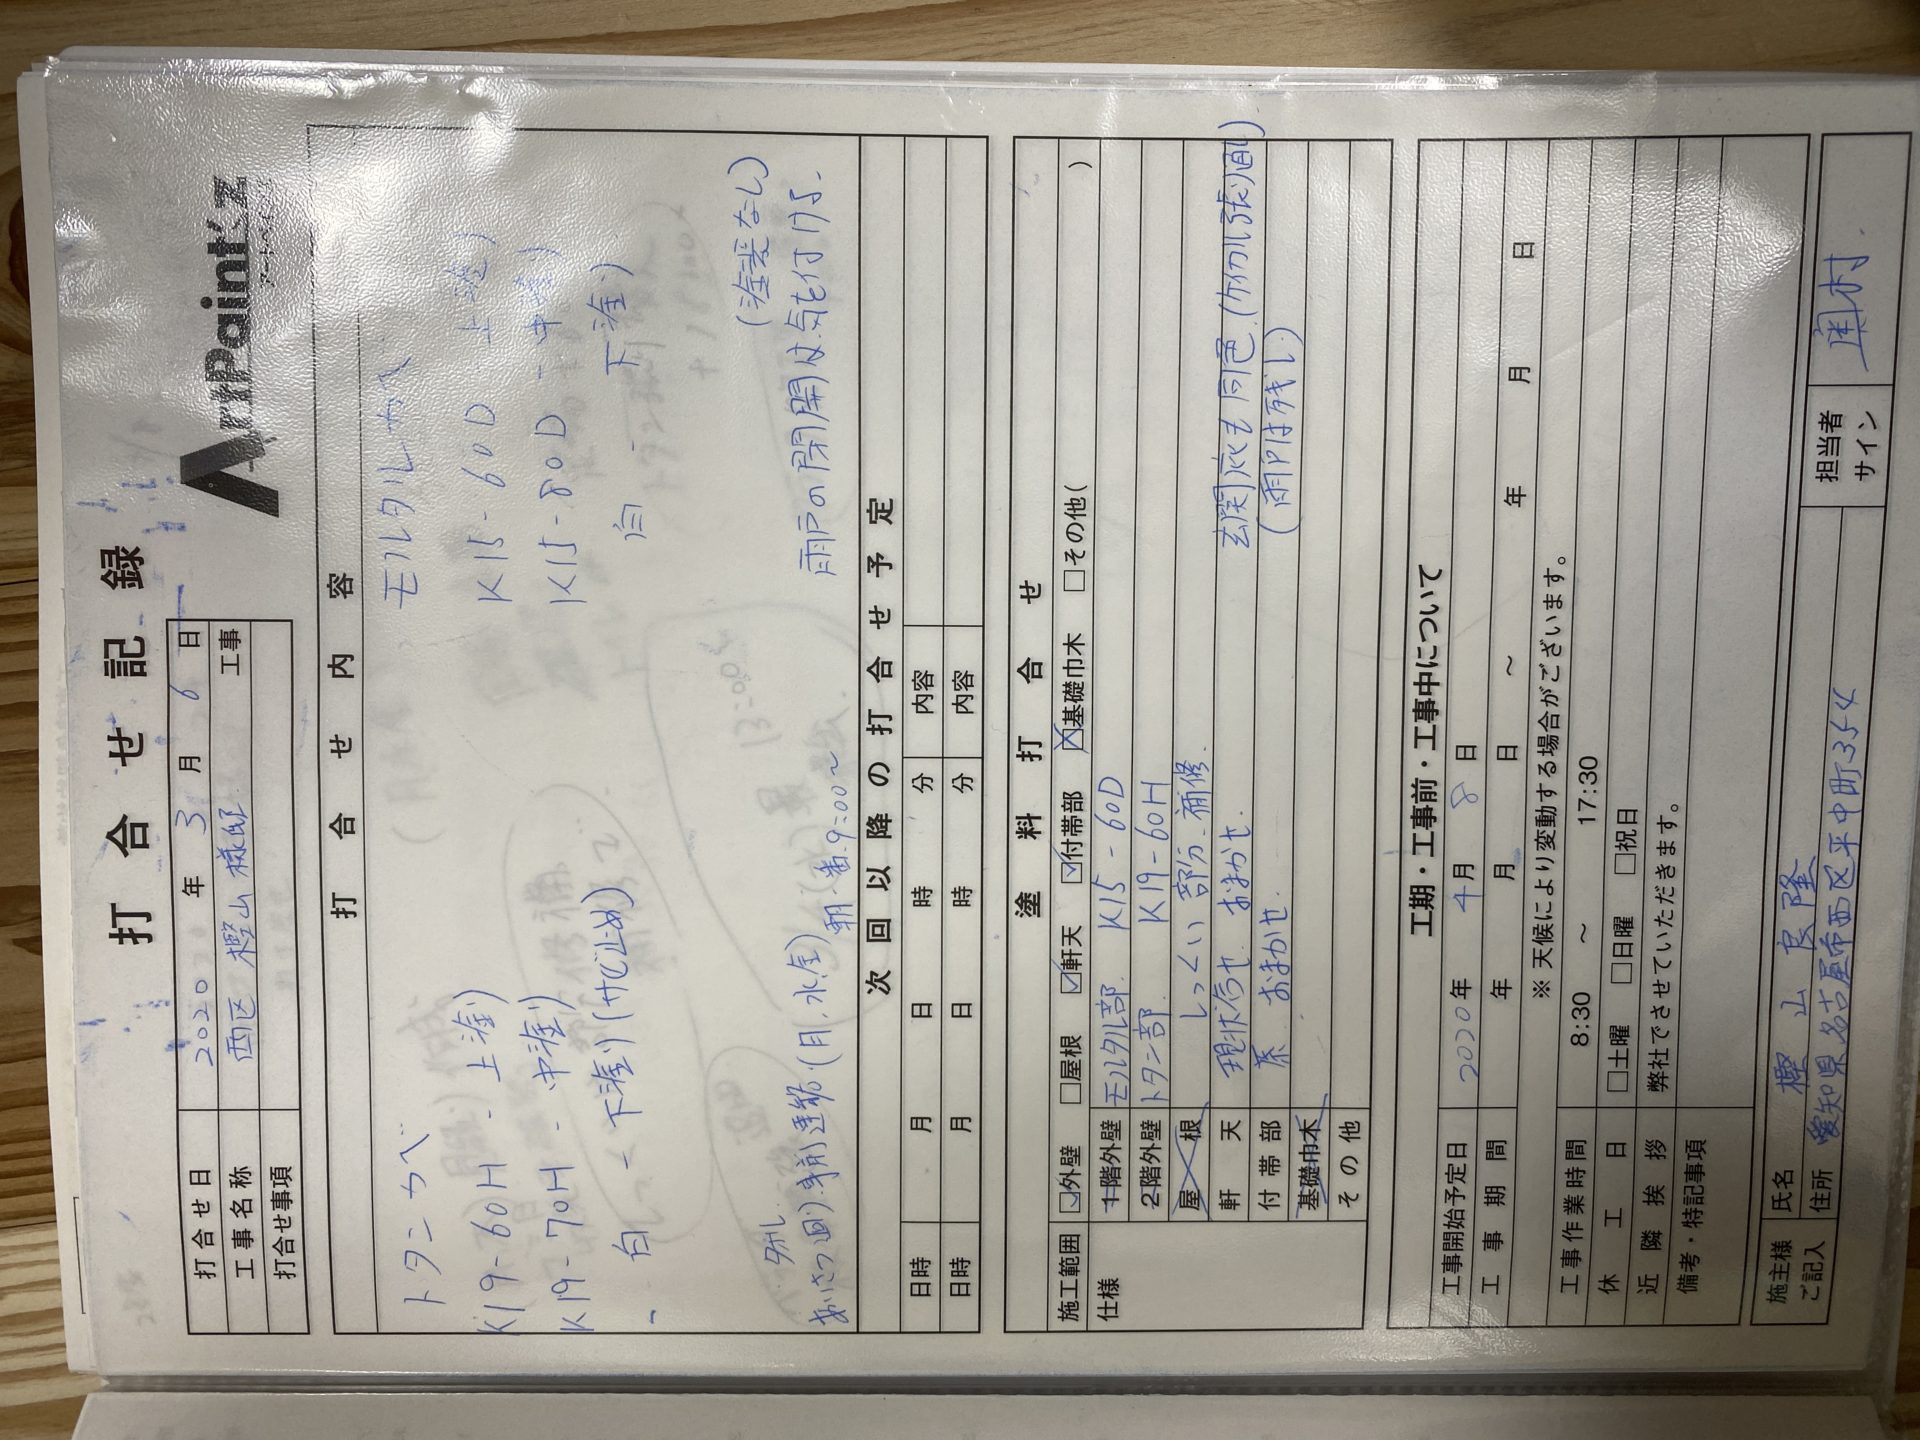 打合せ記録
ArtPaint'z
アートペインズ
打合せ日 2020年 3月 6日
工事名称 西区 樫山様邸 工事
打合せ事項
打合せ内容
トタンカベ
K19-60H - 上塗り
K19-70H - 中塗り
白 - 下塗り(サビ止め)
モルタルカベ
K15-60D 上塗り
K15-80D - 中塗り
白 - 下塗り
(塗装なし)
雨戸の開閉は気を付ける。
タオル
あいさつ回り事前連絡(月、水、金) 朝一番.9:00〜
次回以降の打合せ予定
日時 月 日 時 分 内容
日時 月 日 時 分 内容
塗料打合せ
施工範囲 ☑外壁 □屋根 ☑軒天 ☑付帯部 ☒基礎巾木 □その他( )
仕様
1階外壁 モルタル部. K15-60D
2階外壁 トタン部. K19-60H
屋根 しっくい部分.補修.
軒天 現状合せ おまかせ. 玄関庇も同色.(ケイカル張り直し)
付帯部 茶 おまかせ (雨戸は残し)
基礎巾木
その他
工期・工事前・工事中について
工事開始予定日 2020年 4月 8日
工事期間 年 月 日 〜 年 月 日
※天候により変動する場合がございます。
工事作業時間 8:30 〜 17:30
休工日 □土曜 □日曜 □祝日
近隣挨拶 弊社でさせていただきます。
備考・特記事項
施主様ご記入
氏名 樫山良隆
住所 愛知県名古屋市西区平中町354
担当者サイン 奥村